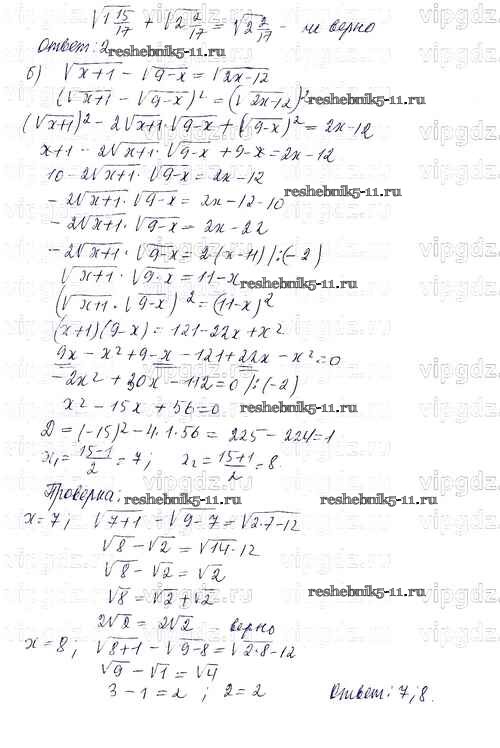 √1 15/17 + √2 2/17 = √2 2/17 - не верно
Ответ: 2 reshebnik5-11.ru
б) √x+1 - √9-x = √2x-12
(√x+1 - √9-x)² = (√2x-12)² reshebnik5-11.ru
(√x+1)² - 2√x+1·√9-x + (√9-x)² = 2x-12
x+1 - 2√x+1·√9-x + 9-x = 2x-12
10 - 2√x+1·√9-x = 2x-12
- 2√x+1·√9-x = 2x-12-10 reshebnik5-11.ru
- 2√x+1·√9-x = 2x-22
- 2√x+1·√9-x = 2·(x-11) /:(-2)
√x+1·√9-x = 11-x reshebnik5-11.ru
(√x+1·√9-x)² = (11-x)²
(x+1)(9-x) = 121-22x+x²
9x - x² + 9 - x - 121 + 22x - x² = 0
- 2x² + 30x - 112 = 0 /:(-2)
x² - 15x + 56 = 0 reshebnik5-11.ru
D = (-15)² - 4·1·56 = 225 - 224 = 1
x₁ = 15-1/2 = 7; x₂ = 15+1/2 = 8.
Проверка: reshebnik5-11.ru reshebnik5-11.ru
x=7; √7+1 - √9-7 = √2·7-12
√8 - √2 = √14-12
√8 - √2 = √2
√8 = √2+√2 reshebnik5-11.ru
2√2 = 2√2 - верно
x=8; √8+1 - √9-8 = √2·8-12
√9 - √1 = √4
3 - 1 = 2 ; 2=2 Ответ: 7; 8.